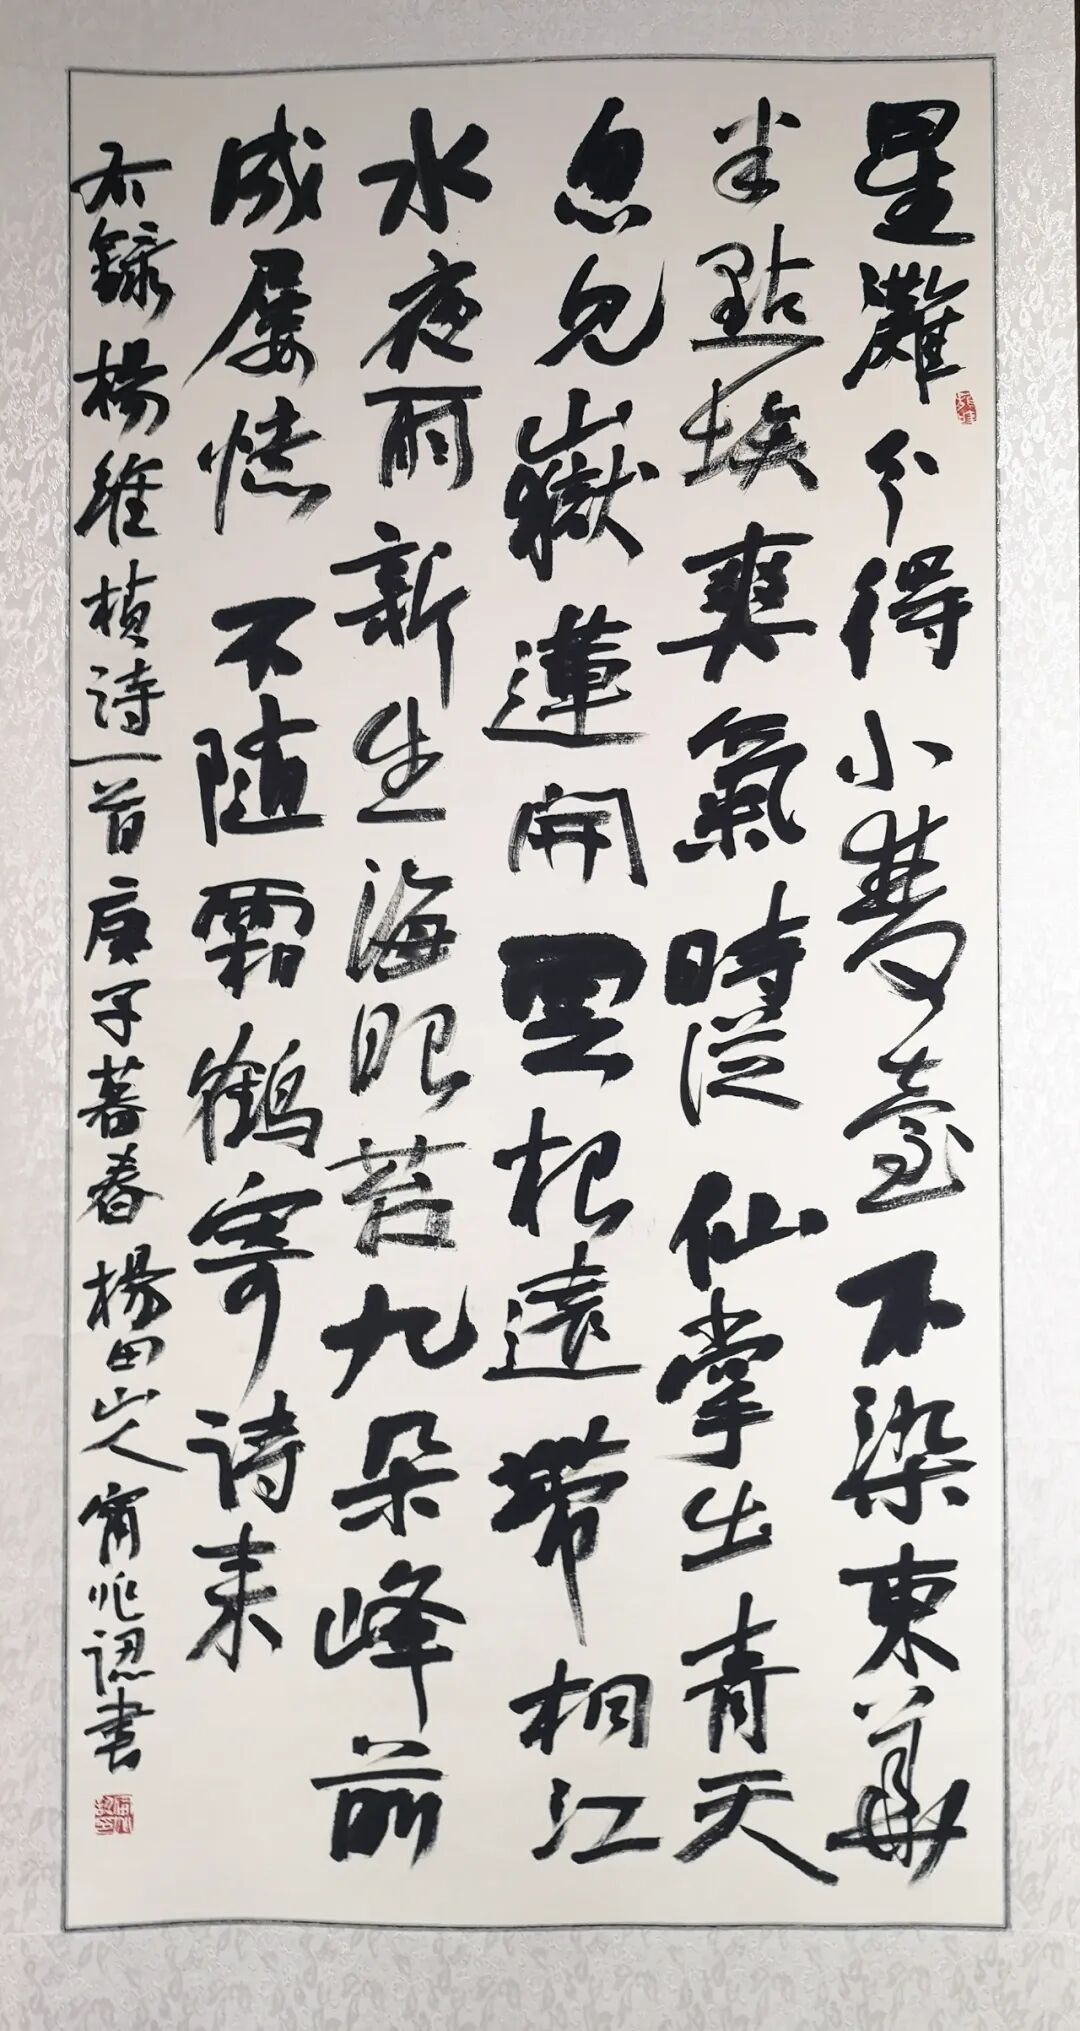 星灘分得小臺不染東華
半點埃爽氣時從仙掌出青天
忽見嶽蓮開雲根遠帶桐江
水夜雨新生海眼苔九朵峰前
成屢憶不隨霜鶴寄詩来
右錄楊維楨詩一首庚子暮春楊田山人兆書